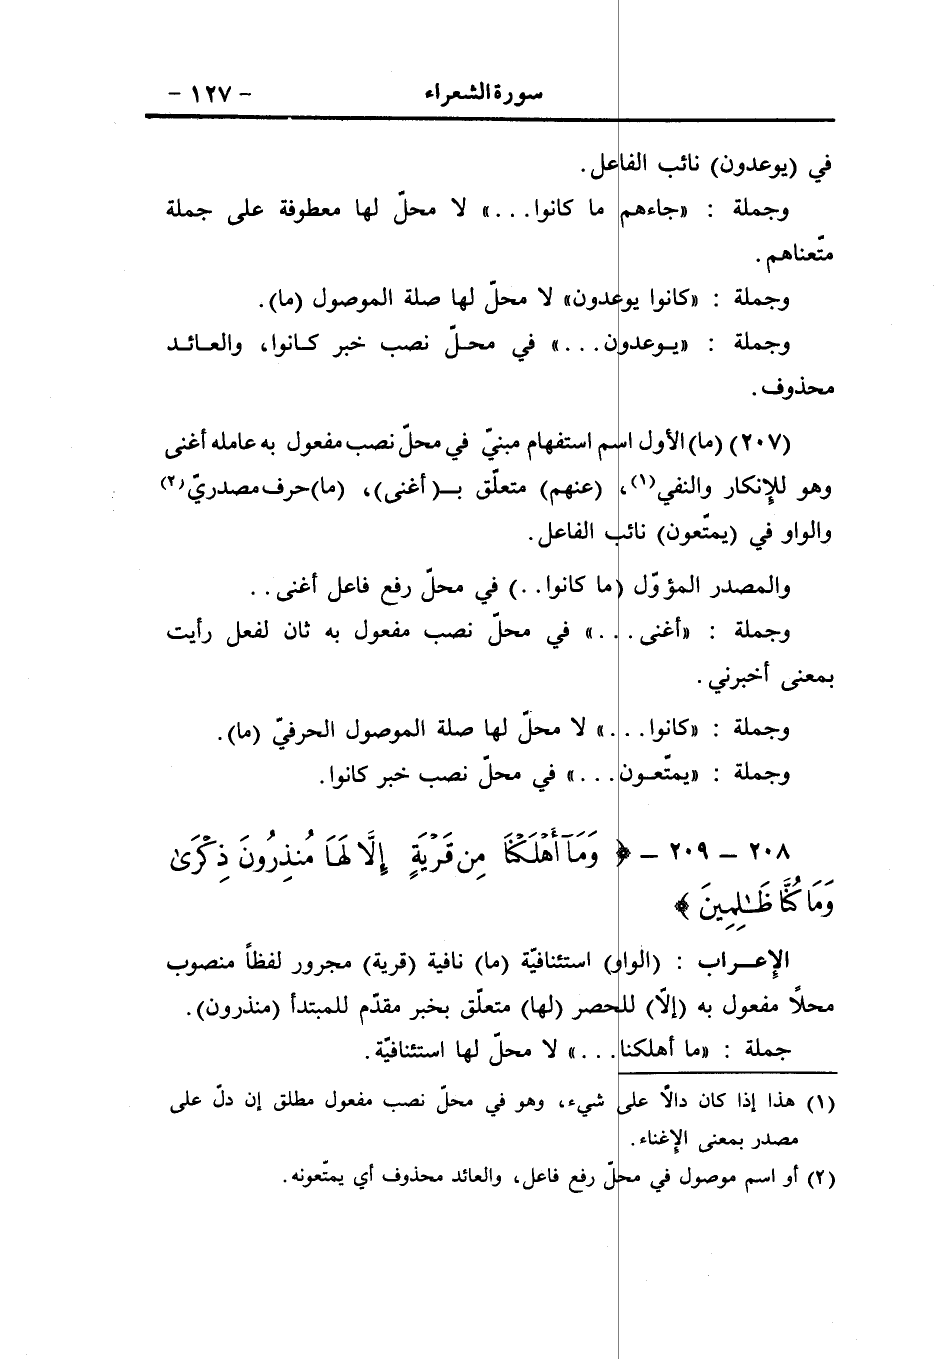 سورة الشعراء - ١٢٧ -
في (يوعدون) نائب الفاعل.
وجملة : «جاءهم ما كانوا...» لا محلّ لها معطوفة على جملة
متّعناهم.
وجملة : «كانوا يوعدون» لا محلّ لها صلة الموصول (ما).
وجملة : «يـوعدون...» في محـلّ نصب خبر كـانوا، والعـائـد
محذوف.
(٢٠٧) (ما) الأول اسم استفهام مبنيّ في محلّ نصب مفعول به عامله أغنى
وهو للإنكار والنفي(١)، (عنهم) متعلّق بـ(أغنى)، (ما) حرف مصدريّ(٢)
والواو في (يمتّعون) نائب الفاعل.
والمصدر المؤوّل (ما كانوا..) في محلّ رفع فاعل أغنى..
وجملة : «أغنى...» في محلّ نصب مفعول به ثان لفعل رأيت
بمعنى أخبرني.
وجملة : «كانوا...» لا محلّ لها صلة الموصول الحرفيّ (ما).
وجملة : «يمتّعـون...» في محلّ نصب خبر كانوا.
٢٠٨ - ٢٠٩ - ﴿ وَمَآ أَهْلَكْنَا مِن قَرْيَةٍ إِلَّا لَهَا مُنذِرُونَ ذِكْرَىٰ
وَمَا كُنَّا ظَـٰلِمِينَ ﴾
الإعـــراب : (الواو) استئنافيّة (ما) نافية (قرية) مجرور لفظاً منصوب
محلاً مفعول به (إلّا) للحصر (لها) متعلّق بخبر مقدّم للمبتدأ (منذرون).
جملة : «ما أهلكنا...» لا محلّ لها استئنافيّة.
(١) هذا إذا كان دالاً على شيء، وهو في محلّ نصب مفعول مطلق إن دلّ على
مصدر بمعنى الإغناء.
(٢) أو اسم موصول في محلّ رفع فاعل، والعائد محذوف أي يمتّعونه.